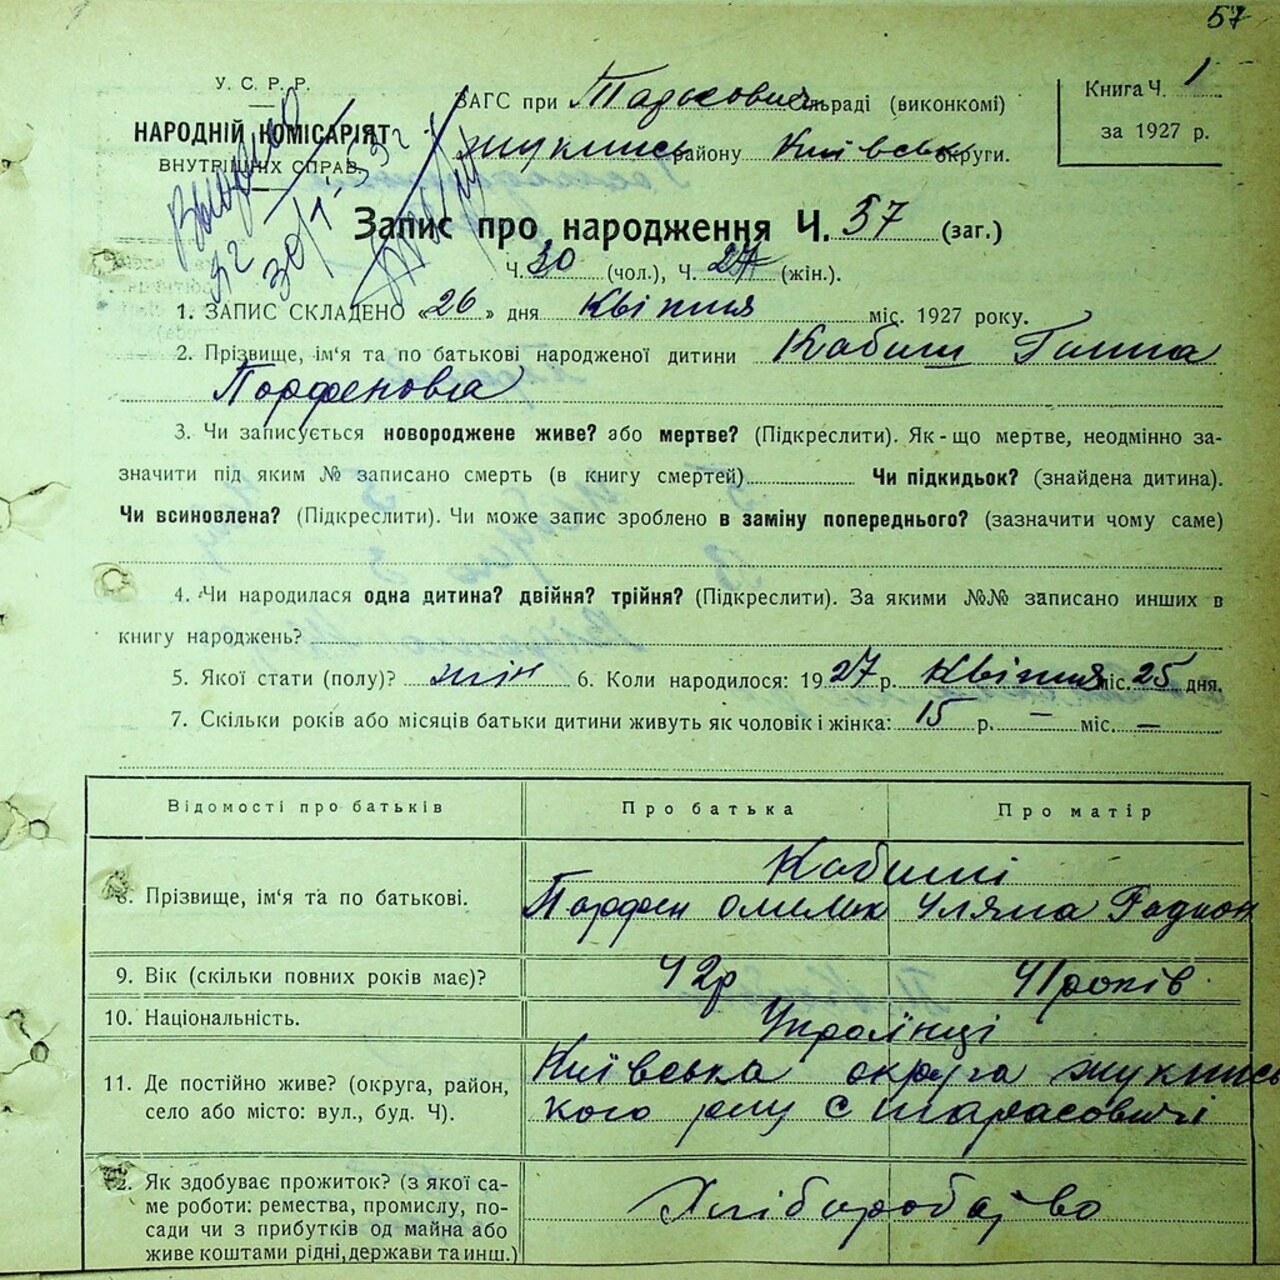 57
У. С. Р. Р.
НАРОДНІЙ КОМІСАРІЯТ
ВНУТРІШНІХ СПРАВ.
ЗАГС при сільраді (виконкомі)
району Київськ округи.
Книга Ч. 1
за 1927 р.
Запис про народження Ч. 57 (заг.)
Ч. 30 (чол.), Ч. 27 (жін.).
1. ЗАПИС СКЛАДЕНО «26» дня Квітня міс. 1927 року.
2. Прізвище, ім'я та по батькові народженої дитини Кабиш Ганна
Порфеновна
3. Чи записується новороджене живе? або мертве? (Підкреслити). Як-що мертве, неодмінно за-
значити під яким № записано смерть (в книгу смертей) Чи підкидьок? (знайдена дитина).
Чи всиновлена? (Підкреслити). Чи може запис зроблено в заміну попереднього? (зазначити чому саме)
4. Чи народилася одна дитина? двійня? трійня? (Підкреслити). За якими №№ записано инших в
книгу народжень?
5. Якої стати (полу)? жін 6. Коли народилося: 1927 р. Квітня міс. 25 дня.
7. Скільки років або місяців батьки дитини живуть як чоловік і жінка: 15 р. — міс. —
Відомості про батьків Про батька Про матір
Кабиші
8. Прізвище, ім'я та по батькові. Порфен Омельк Уляна Радион
9. Вік (скільки повних років має)? 42р 41 років
10. Національність. Українці
11. Де постійно живе? (округа, район,
село або місто: вул., буд. Ч).
Київська округа жукинсь
кого рну с тарасовичі
12. Як здобуває прожиток? (з якої са-
ме роботи: ремества, промислу, по-
сади чи з прибутків од майна або
живе коштами рідні, держави та инш.)
Хліборобство